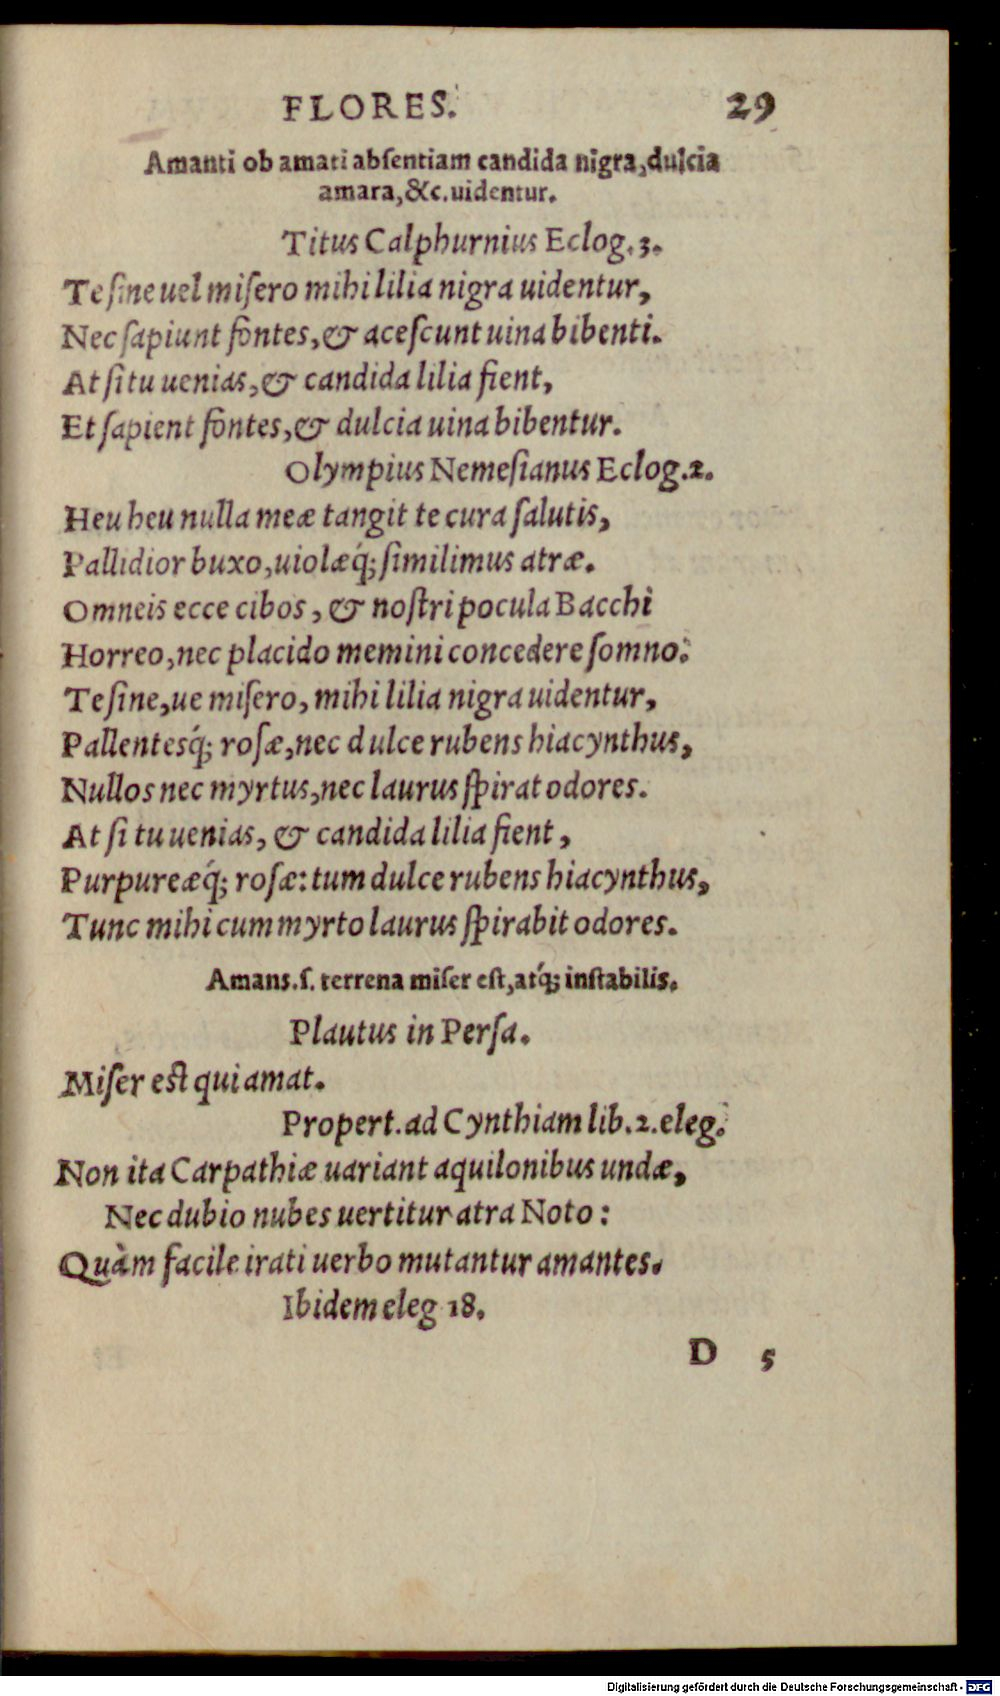 FLORES. 29
Amanti ob amati absentiam candida nigra, dulcia
amara, &c. uidentur.
Titus Calphurnius Eclog. 3.
Te ſine uel miſero mihi lilia nigra uidentur,
Nec ſapiunt fontes, & aceſcunt uina bibenti.
At ſi tu uenias, & candida lilia fient,
Et ſapient fontes, & dulcia uina bibentur.
Olympius Nemeſianus Eclog. 2.
Heu heu nulla meæ tangit te cura ſalutis,
Pallidior buxo, uiolæq́; ſimilimus atræ.
Omneis ecce cibos, & noſtri pocula Bacchi
Horreo, nec placido memini concedere ſomno:
Te ſine, ue miſero, mihi lilia nigra uidentur,
Pallentesq́; roſæ, nec dulce rubens hiacynthus,
Nullos nec myrtus, nec laurus ſpirat odores.
At ſi tu uenias, & candida lilia fient,
Purpureæq́; roſæ: tum dulce rubens hiacynthus,
Tunc mihi cum myrto laurus ſpirabit odores.
Amans. ſ. terrena miſer eſt, atq́; inſtabilis.
Plautus in Perſa.
Miſer eſt qui amat.
Propert. ad Cynthiam lib. 2. eleg.
Non ita Carpathiæ uariant aquilonibus undæ,
Nec dubio nubes uertitur atra Noto:
Quàm facile irati uerbo mutantur amantes.
Ibidem eleg 18.
D 5
Digitalisierung gefördert durch die Deutsche Forschungsgemeinschaft - DFG